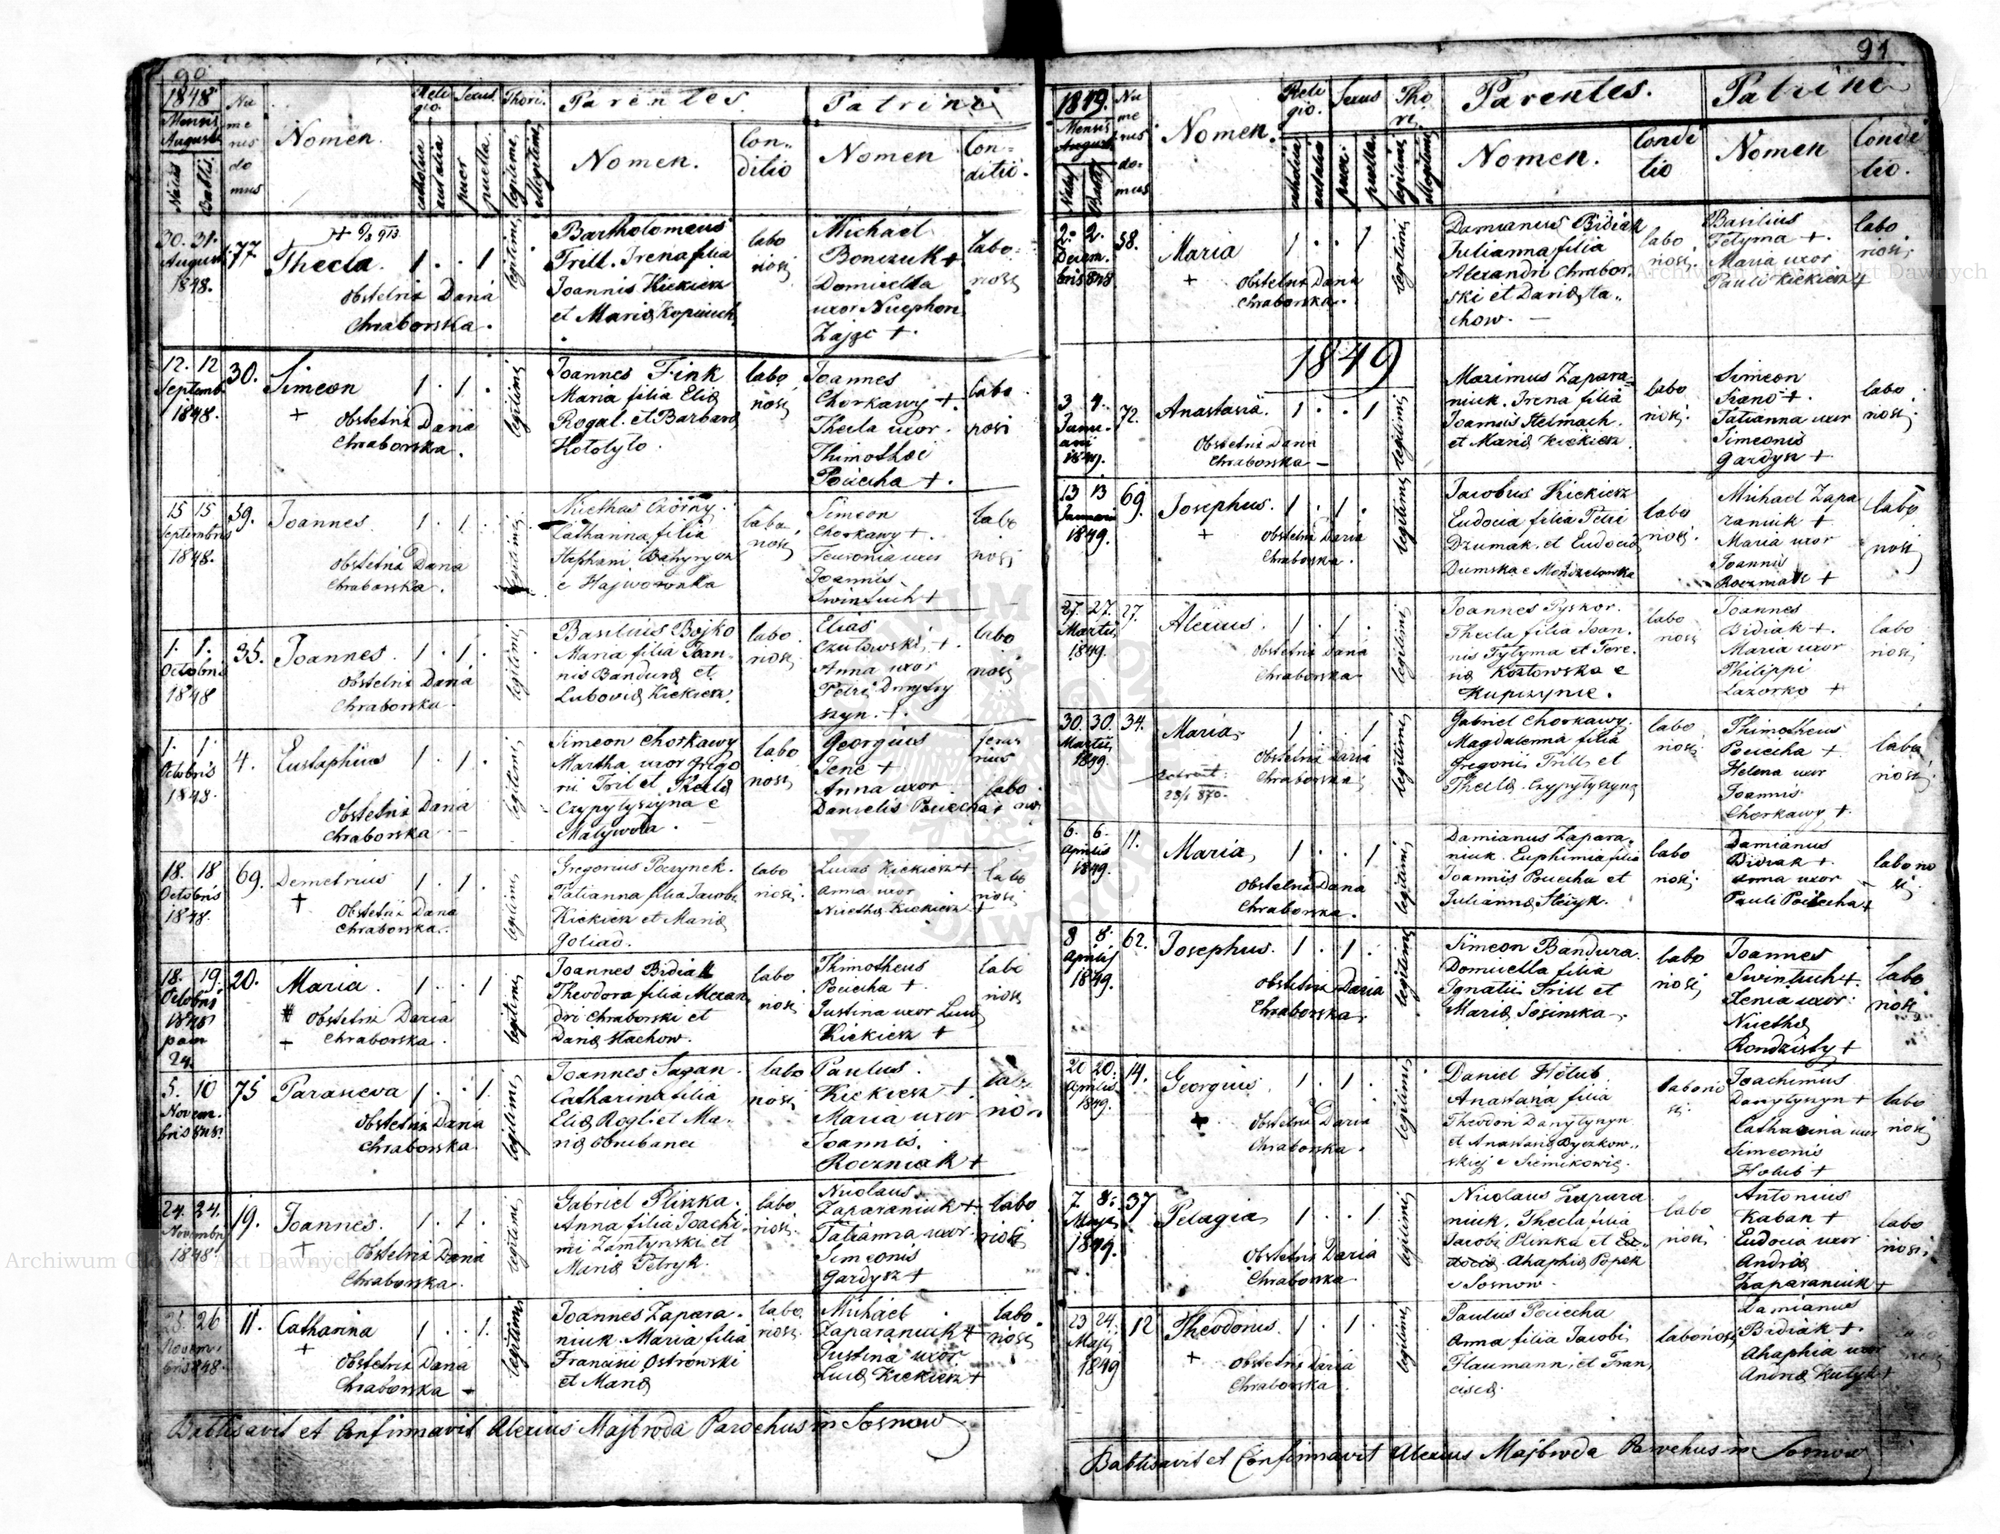 90
1848
Mensis
Augusti
Natus
Babtis.
Nu
me
rus
do
mus
Nomen.
Reli
gio.
catholica
aut alia
Sexus.
puer
puella.
Thori.
legitimi,
illegitimi,
Parentes.
Nomen.
Con-
ditio
Patrini
Nomen
Con-
ditio.
30. 31.
August
1848.
77
Thecla.
1 . . 1
Obstetrix Daria
Chraborska.
legitimi,
Bartholomeus
Trill. Irena filia
Joannis Kickiesz
et Maria
labo
riosi,
Michael
Bonczuk +
Domicella
uxor Nicephori
Zając +
labo.
riosi,
12. 12
Septemb
1848.
30.
Simeon
+
1 . 1 .
Obstetrix Daria
Chraborska.
legitimi,
Joannes Fink
Maria filia Eliæ
Rogal. et Barbara
Hototyto.
labo
riosi,
Joannes
Chorkawy +
Thecla uxor
Thimothei
Pociecha +.
labo
riosi
15 15
Septembris
1848.
59.
Joannes.
1 . 1 .
Obstetrix Daria
Chraborska.
legitimi,
Nicethas Czorny.
Catharina filia
Stephani
e Hajworonka
labo,
riosi,
Simeon
Chorkawy +.
Fevronia uxor
Joannis
Swintuch +
labo
riosi,
1. 1.
Octobris
1848
35.
Joannes.
1 . 1 .
Obstetrix Daria
Chraborska.
legitimi,
Basilius Bojko
Maria filia Joan-
nis Bandura et
Lubovia Kickiesz.
labo.
riosi,
Elias
Czulowski, +
Anna uxor
Petri Dmytry
szyn. +.
labo
riosi,
1. 1.
Octobris
1848.
4.
Eustaphius
1 . 1 .
Obstetrix Daria
Chraborska.
legitimi,
Simeon Chorkawy
Martha uxor Grigo
rii Tril et Thecla
Czypytyszyna e
Malywoda.
labo
riosi,
Georgius
Jene +
Anna uxor.
Danielis Pociecha +
labo.
18. 18
Octobris
1848.
69.
Demetrius
+
1 . 1 .
Obstetrix Daria
Chraborska.
legitimi,
Gregorius Poczynek.
Tatianna filia Jacobi
Kickiesz et Maria
Goliad.
labo
riosi.
Lucas Kickiesz +
Anna uxor
Nicetha Kickiesz +
labo
riosi,
18. 19.
Octobris
1848
pom
24.
20.
Maria.
1 . . 1
+
Obstetrix Daria
Chraborska.
legitimi,
Joannes Bidiak
Theodora filia Alexan
dri Chraborski et
Daria Stachow.
labo
riosi,
Thimotheus
Pociecha +.
Justina uxor Luca
Kickiesz +
labo
riosi,
5. 10
Novem-
bris 848.
75
Parasceva
1 . . 1
Obstetrix Daria
Chraborska.
legitimi,
Joannes Sagan.
Catharina filia
Eliæ Rogl et Ma-
ria Obrubanci
labo
riosi,
Paulus.
Kickiesz +.
Maria uxor
Joannis.
Roczniak +
labo
24. 24.
Novembri
1848
19.
Joannes.
+
1 . 1 .
Obstetrix Daria
Chraborska.
legitimi,
Gabriel Pliszka.
Anna filia Joachi-
mi Zamtynski et
Maria Petryk.
labo.
riosi,
Nicolaus.
Zaparaniuk +.
Tatianna uxor.
Simeonis
Gardysz +
labo
riosi,
25. 26
Novem-
bris 848.
11.
Catharina
+
1 . . 1.
Obstetrix Daria
Chraborska -
legitimi,
Joannes Zapara-
niuk. Maria filia
Francisci Ostrowski
et Maria
labo.
riosi.
Michael
Zaparaniuk +
Justina uxor
Luca Kickiesz +
labo
riosi,
Babtisavit et Confirmavit Alexius Majbroda Parochus in Sosnow
91
1849.
Mensis
August.
Natus
Babt
Nu
me
rus
do-
mus
Nomen.
Reli
gio.
catholica
aut alia
Sexus
puer.
puella
Tho
ri,
legitimi,
illegitimi,
Parentes.
Nomen.
Condi
tio
Patrini
Nomen
Condi
tio.
2. 2.
Decem-
bris 848
58.
Maria
1 . . 1
+
Obstetrix Daria
Chraborska.
legitimi,
Damianus Bidiak
Julianna filia
Alexandri Chrabor.
ski et Daria Sta..
chow. —
labo.
riosi,
Basilius
Tytyma +.
Maria uxor
Pauli Kickiesz +
labo
riosi,
1849
3. 4.
Janu-
arii
1849.
72.
Anastasia.
1 . . 1
Obstetrix Daria
Chraborska —
legitimi,
Maximus Zapara-
niuk. Irena filia
Joannis Stelmach.
et Maria Kickiesz.
labo
riosi,
Simeon
Tatianna uxor
Simeonis
Gardysz +
labo
riosi.
13 13
Januarii
1849.
69.
Josephus.
+
1 . 1 .
Obstetrix Daria
Chraborska.
legitimi,
Jacobus Kickiesz
Eudocia filia Petri
Dzumak. et Eudocia
Dumska e
labo.
riosi.
Michael Zapa
raniuk +
Maria uxor
Joannis
Roczniak +
labo
riosi,
27. 27.
Martii,
1849.
27.
Alexius.
1 . 1 .
Obstetrix Daria
Chraborska.
legitimi,
Joannes Pyskor.
Thecla filia Joan.
nis Tytyma et Tere-
sia Kozłowska e
Kupczynie.
labo
riosi,
Joannes
Bidiak +.
Maria uxor
Philippi
Lazorko +
labo
riosi,
30. 30.
Martii,
1849.
34.
Maria,
1 . . 1
Obstetrix Daria
Chraborska,
extract:
23/1 870.
legitimi,
Gabriel Chorkawy.
Magdalenna filia
Gregorii Trill et
Thecla. Czypytyszyna
labo
riosi,
Thimotheus
Pociecha +
Helena uxor
Joannis
Chorkawy +.
labo
riosi,
6. 6.
Aprilis
1849.
11.
Maria,
1 . . 1
Obstetrix Daria
Chraborska.
legitimi,
Damianus Zapara-
niuk. Euphimia filia
Joannis Pociecha et
Julianna Steczyk.
labo
riosi,
Damianus
Bidiak +.
Anna uxor
Pauli Pociecha +
laborio
si,
8 8.
Aprilis
1849.
62.
Josephus.
1 . 1 .
Obstetrix Daria
Chraborska,
legitimi,
Simeon Bandura.
Domicella filia
Ignatii Trill et
Maria Sosinska.
labo
riosi,
Joannes
Swintuch +.
Xenia uxor.
Nicetha
Rondzisty +
labo
riosi,
20 20.
Aprilis
1849.
14.
Georgius,
+
1 . 1 .
Obstetrix Daria
Chraborska.
legitimi,
Daniel Hotub.
Anastasia filia
Theodori Danytyszyn
et Anastasia Dyczkow..
skiej e Siemikowie.
laborio
si.
Joachimus
Danytyszyn +
Catharina uxor
Simeonis
Holub +
labo
riosi,
7. 8.
Maji,
1849.
37
Pelagia,
1 . . 1
Obstetrix Daria
Chraborska.
legitimi,
Nicolaus Zapara
niuk. Thecla filia
Jacobi Pliszka et Eu-
docia. Ahaphia Popek
e Sosnow.
labo
riosi,
Antonius
Kaban +
Eudocia uxor
Andrea
Zaparaniuk +
labo
riosi,
23 24.
Maji,
1849
12
Theodorus.
+
1 . 1 .
Obstetrix Daria
Chraborska.
legitimi,
Paulus Pociecha
Anna filia Jacobi,
Haumann, et Fran,
cisca.
laboriosi,
Damianus
Bidiak +.
Ahaphia uxor
Andrea Kutyk +
Babtisavit et Confirmavit Alexius Majbroda Parochus in Sosnow
Archiwum Główne Akt Dawnych
Archiwum Główne Akt Dawnych